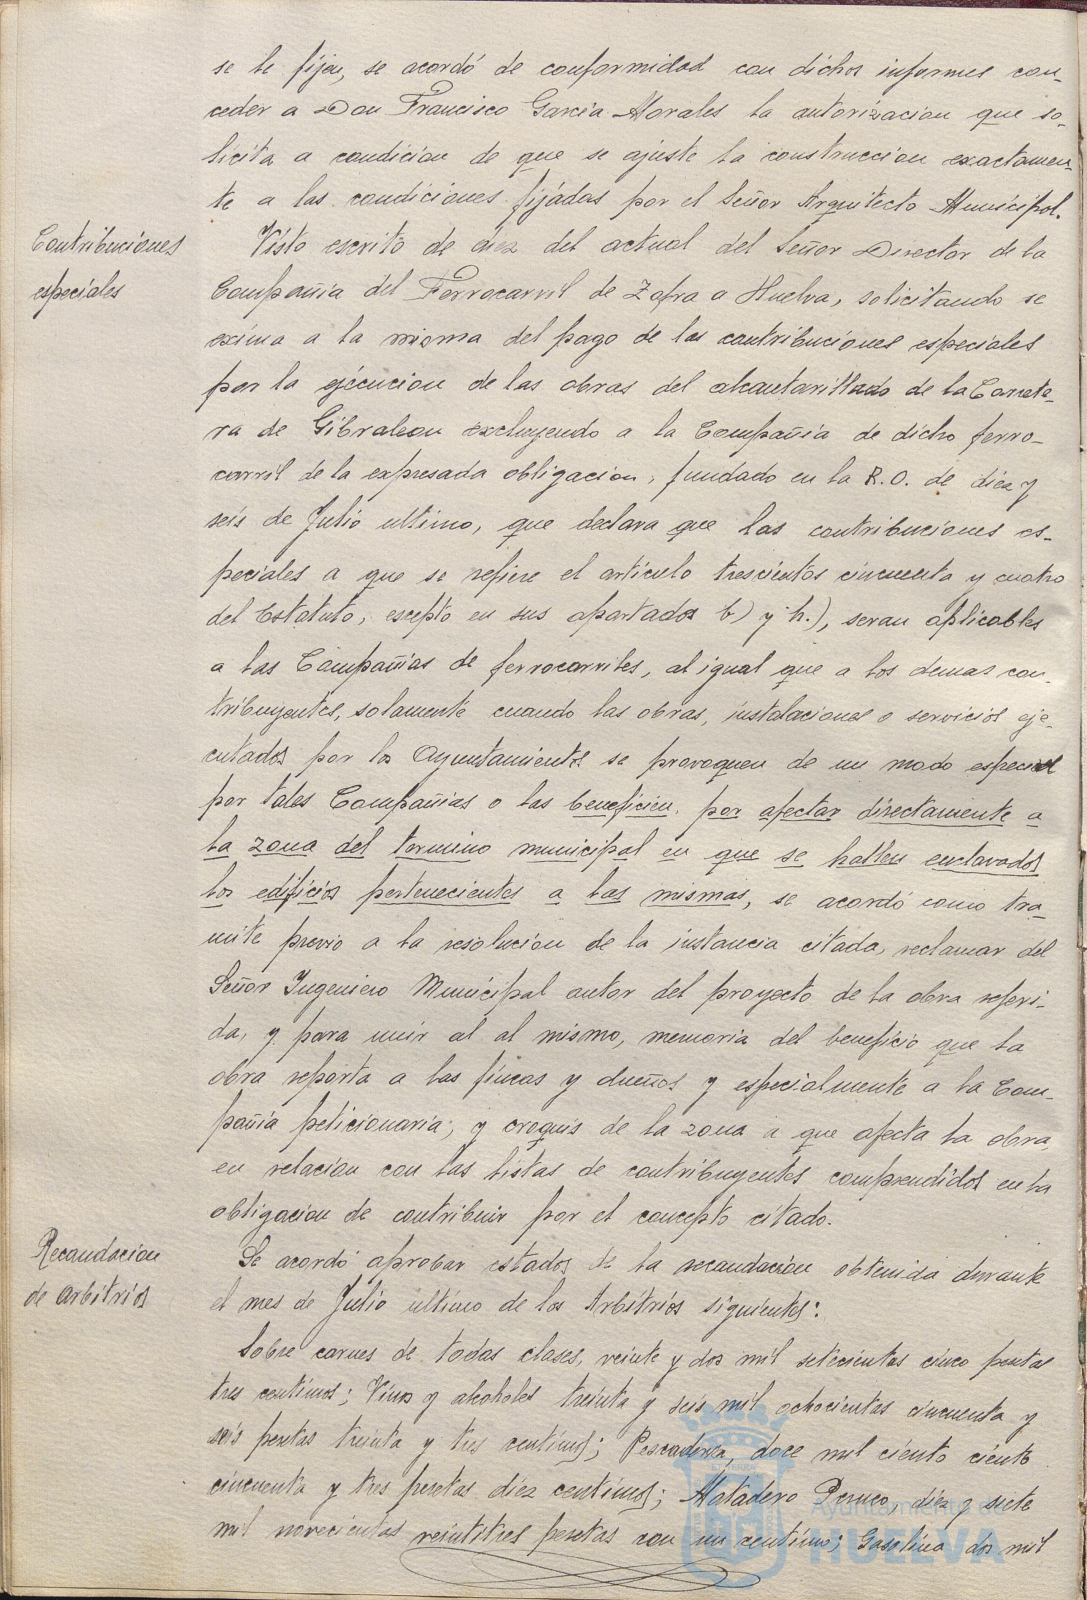 se le fijen, se acordó de conformidad con dichos informes con-
ceder a Don Francisco Garcia Morales la autorizacion que so-
licita a condicion de que se ajuste la construccion exactamen-
te a las condiciones fijadas por el Señor Arquitecto Municipal.
Contribuciones
especiales
Visto escrito de diez del actual del Señor Director de la
Compañia del Ferrocarril de Zafra a Huelva, solicitando se
exima a la misma del pago de las contribuciones especiales
por la ejecucion de las obras del alcantarillado de la Carrete-
ra de Gibraleon excluyendo a la Compañia de dicho ferro-
carril de la expresada obligacion, fundado en la R.O. de diez y
seis de Julio ultimo, que declara que las contribuciones es-
peciales a que se refiere el articulo trescientos cincuenta y cuatro
del Estatuto, escepto en sus apartados b) y h.), seran aplicables
a las Compañias de ferrocarriles, al igual que a los demas con-
tribuyentes, solamente cuando las obras, instalaciones o servicios eje-
cutados por los Ayuntamientos se provoquen de un modo especial
por tales Compañias o las beneficien por afectar directamente a
la zona del termino municipal en que se hallen enclavados
los edificios pertenecientes a las mismas, se acordó como tra-
mite previo a la resolucion de la instancia citada, reclamar del
Señor Ingeniero Municipal autor del proyecto de la obra referi-
da, y para unir al al mismo, memoria del beneficio que la
obra reporta a las fincas y dueños y especialmente a la Com-
pañia peticionaria; y croquis de la zona a que afecta la obra,
en relacion con las listas de contribuyentes comprendidos en la
obligacion de contribuir por el concepto citado.
Recaudacion
de arbitrios
Se acordó aprobar estados de la recaudacion obtenida durante
el mes de Julio ultimo de los Arbitrios siguientes:
Sobre carnes de todas clases, veinte y dos mil setecientas cinco pesetas
tres centimos; Vinos y alcoholes treinta y seis mil ochocientas cincuenta y
seis pesetas treinta y tres centimos; Pescaderia, doce mil ciento ciento
cincuenta y tres pesetas diez centimos; Matadero Publico, diez y siete
mil novecientas veintitres pesetas con un centimo; Gasolina dos mil
Ayuntamiento de
HUELVA